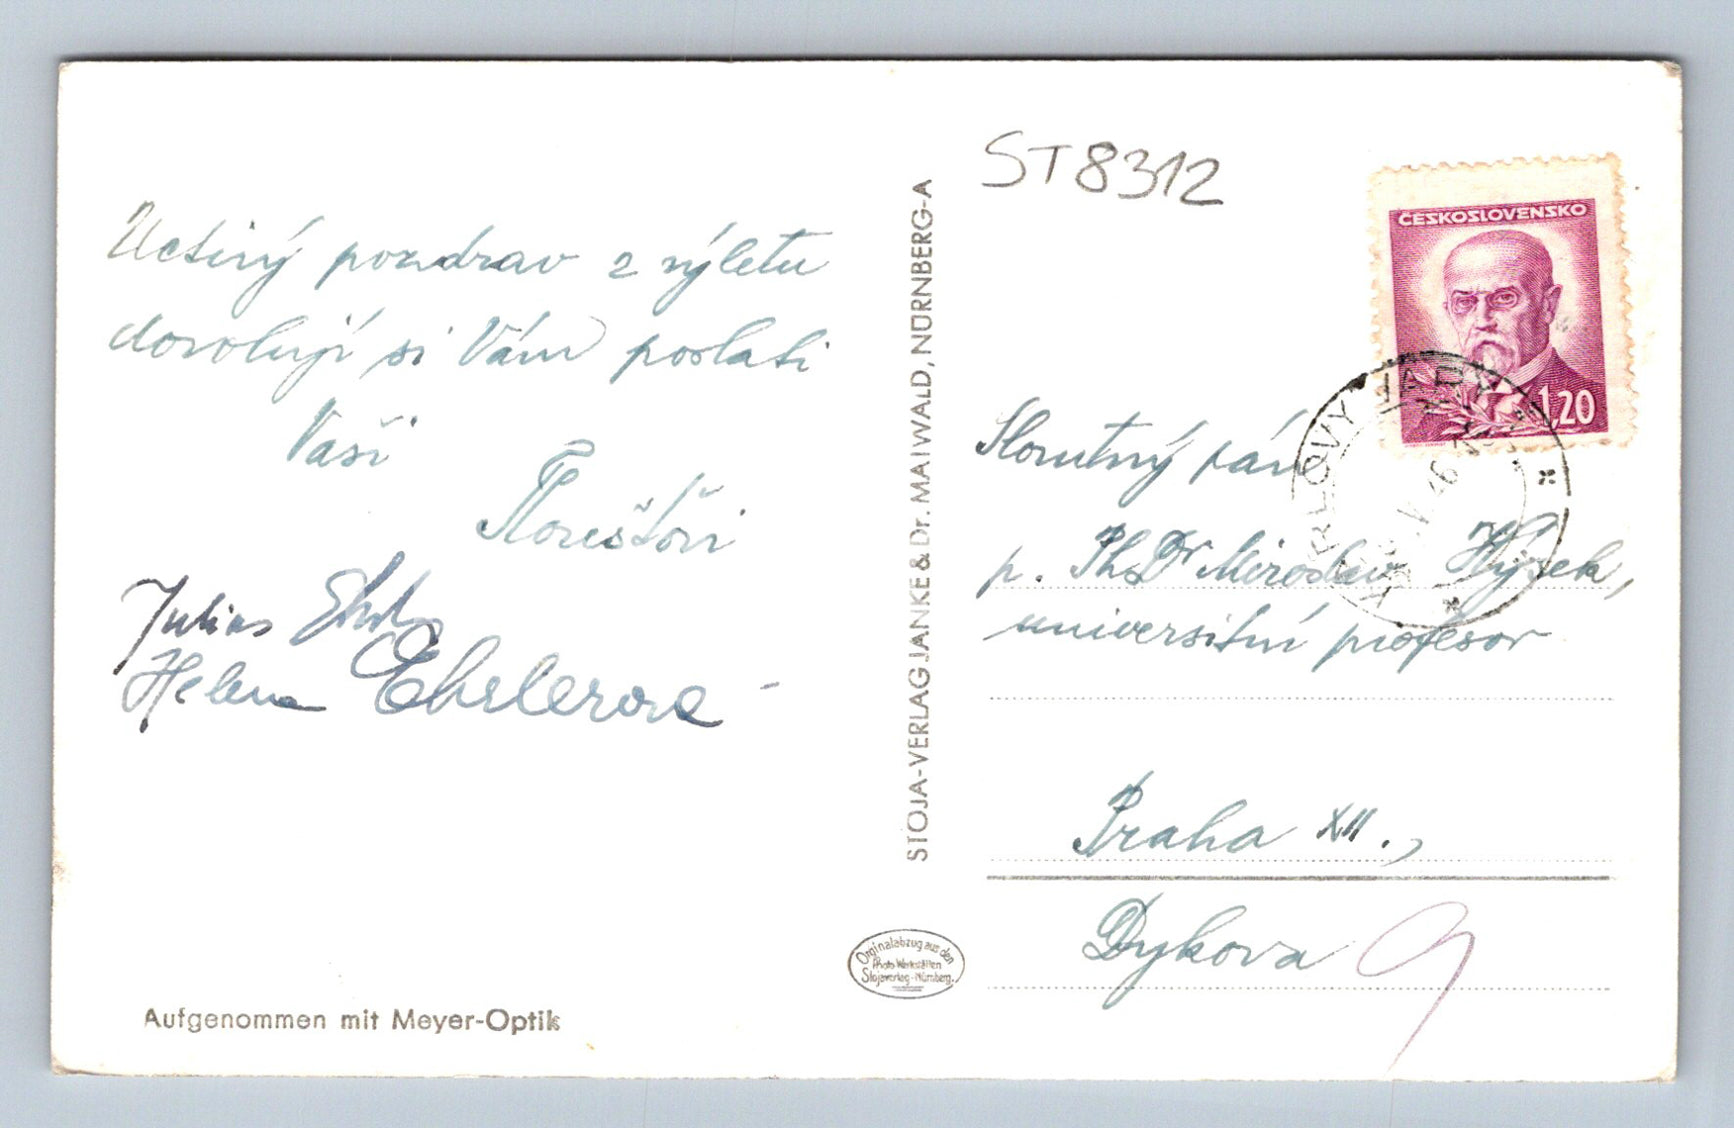 Uctivý pozdrav z výletu
dovolují si Vám poslati
Vaši
Julius
Helena Ehrlerová
Aufgenommen mit Meyer-Optik
STOJA-VERLAG JANKE & Dr. MAIWALD, NÜRNBERG-A
Orginalabzug aus den
Photo Werkstätten
Stojaverlag-Nürnberg.
ST8312
ČESKOSLOVENSKO
1,20
KARLOVY VARY
Slovutný pán
p. PhDr Miroslav Hýsek,
universitní profesor
Praha XII.,
Dykova 9